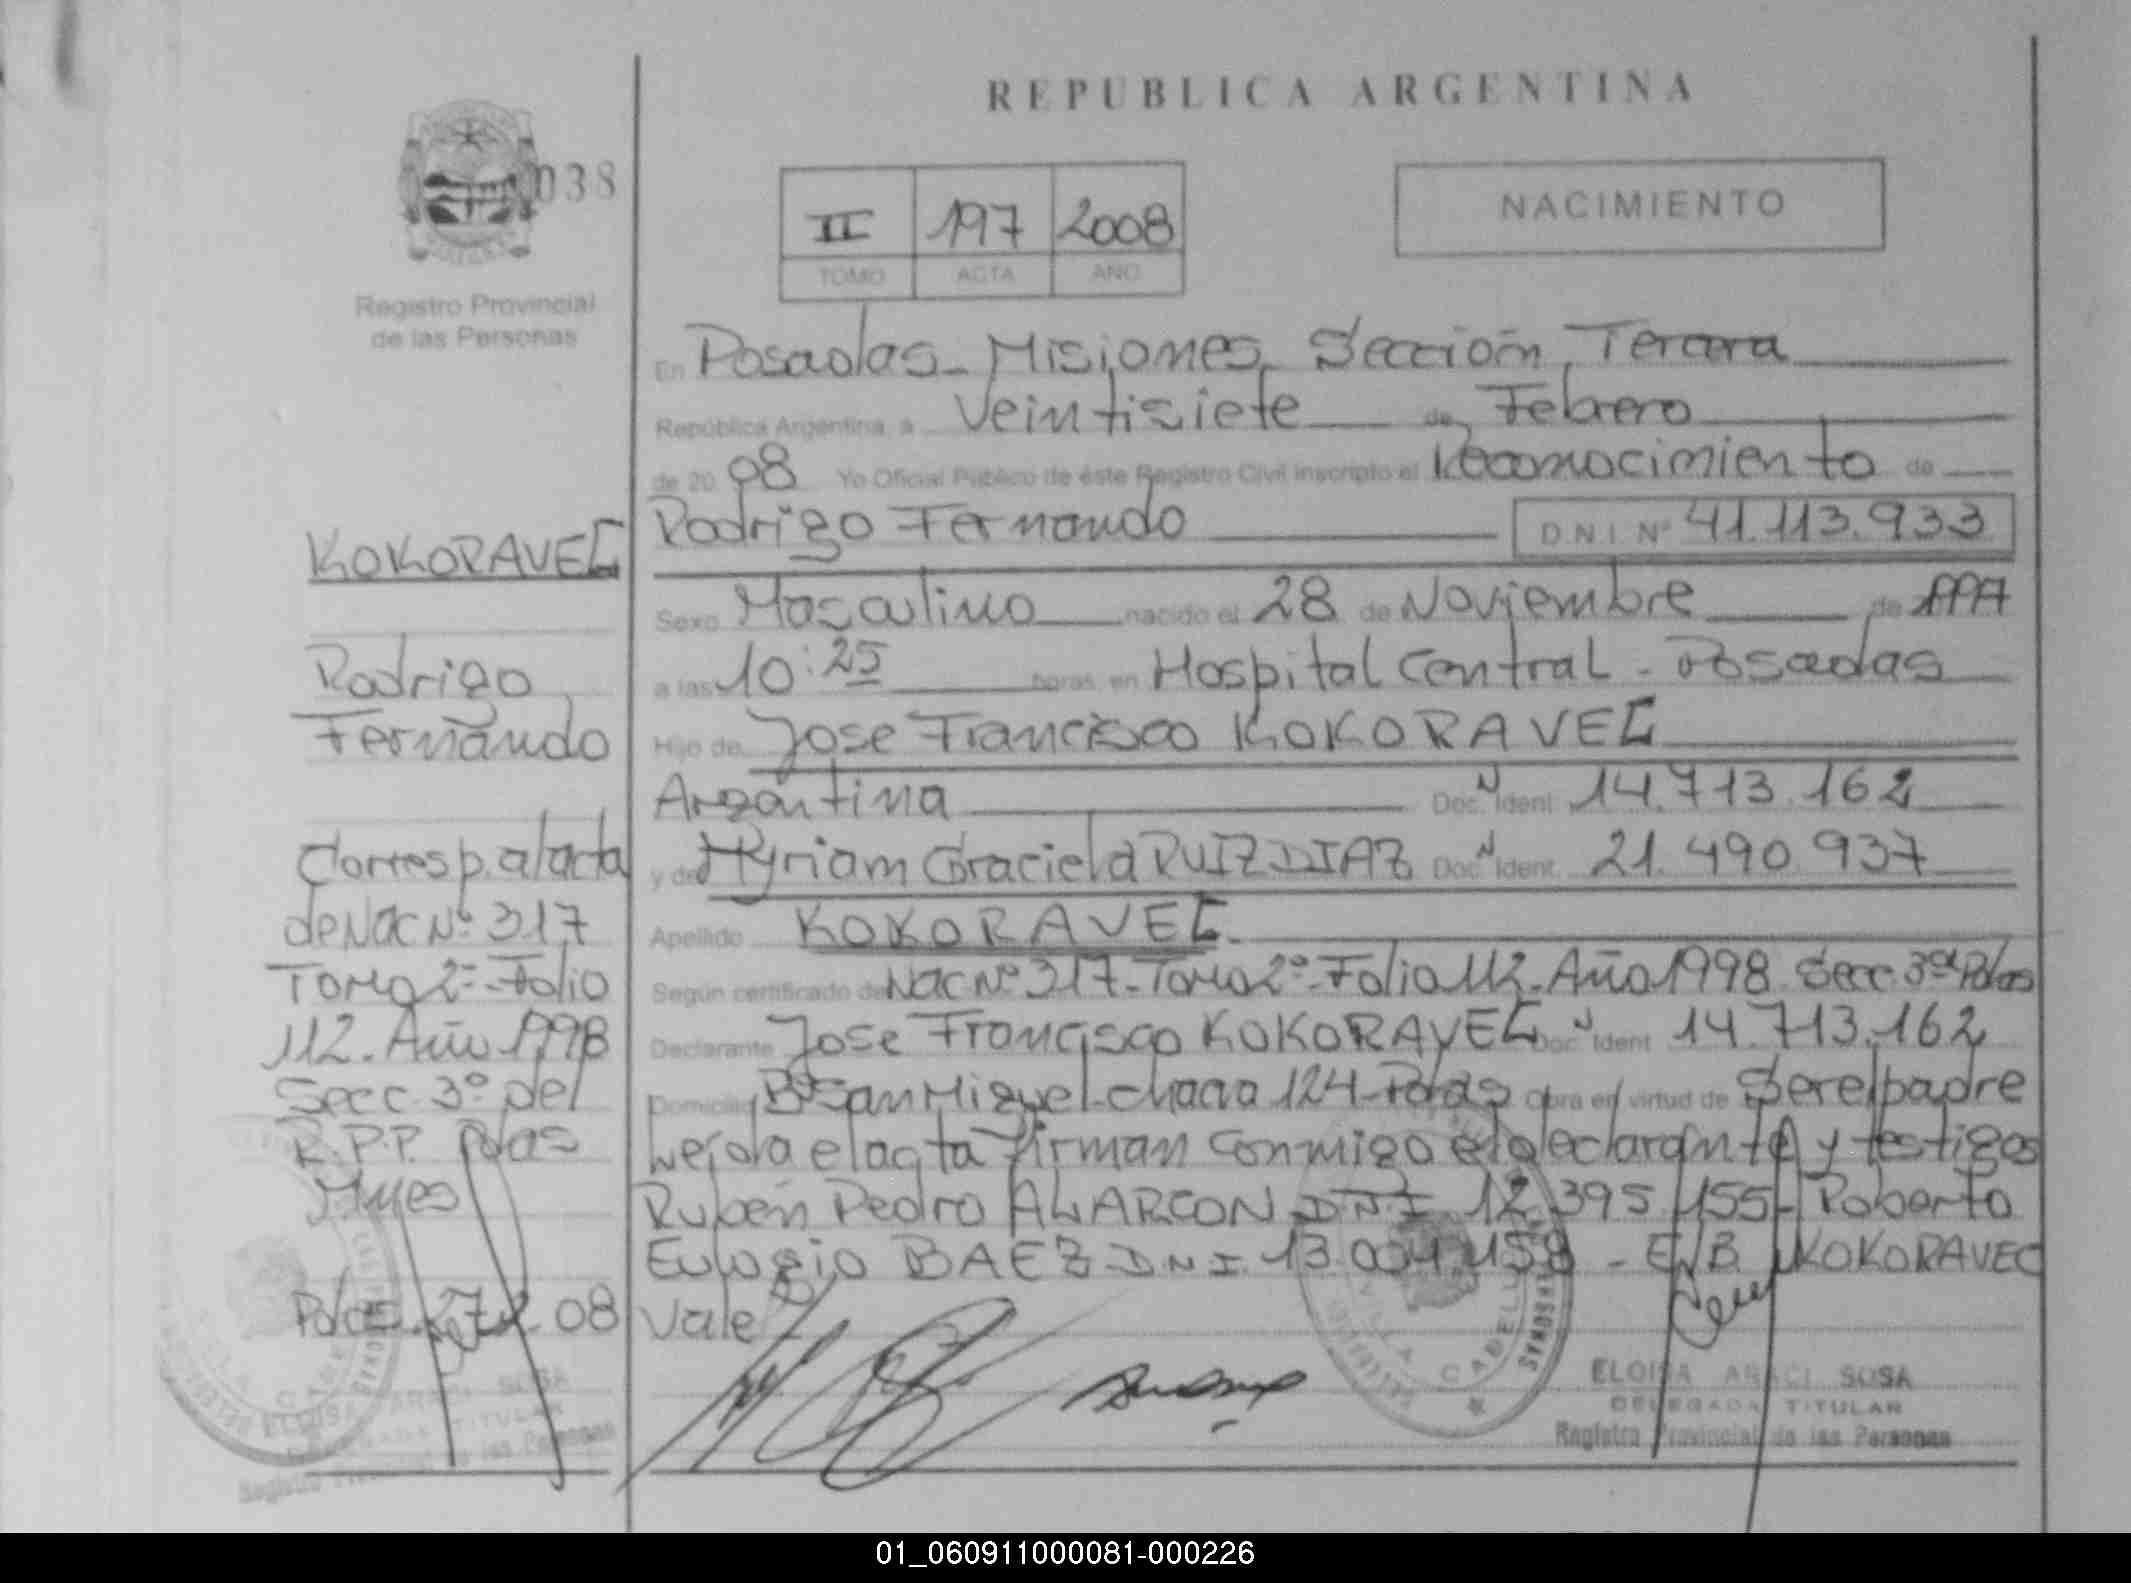 REPUBLICA ARGENTINA
038
II 197 2008
TOMO ACTA AÑO
NACIMIENTO
Registro Provincial
de las Personas
En Posadas - Misiones, Sección, Tercera
República Argentina, a Veintisiete de Febrero
de 20 08 Yo Oficial Público de éste Registro Civil inscripto el Reconocimiento de
Rodrigo Fernando D.N.I. Nº 41.113.933
Sexo Masculino nacido el 28 de Noviembre de
a las 10:25 horas en Hospital Central - Posadas
Hijo de Jose Francisco KOKORAVEC
Argentina Doc. Ident. 14.713.162
y de Myriam Graciela RUIZ DIAZ Doc. Ident. 21.490.937
Apellido KOKORAVEC
Según certificado de Nac Nº 317 - Tomo 2º - Folio 112 - Año 1998 Secc. 3ra Pdas
Declarante Jose Francisco KOKORAVEC Doc. Ident 14.713.162
Domicilio Bº San Miguel - chacra 124 - Pdas Obra en virtud de Ser el padre
Leida el acta firman conmigo el declarante y testigos
Ruben Pedro ALARCON D.N.I. 12.395.155 - Roberto
Eulogio BAEZ D.N.I. 13.004.158 - E/B. KOKORAVEC
Vale
KOKORAVEC
Rodrigo
Fernando
Corresp. al acta
de Nac Nº 317
Tomo 2º - Folio
112. Año 1998
Secc. 3º del
R.P.P. Pdas
Mnes
Pdas. 27 2 08
ELOISA ARACI SOSA
DELEGADA TITULAR
Registro Provincial de las Personas
ELOISA ARACI SOSA
DELEGADA TITULAR
Registro Provincial de las Personas
01_060911000081-000226